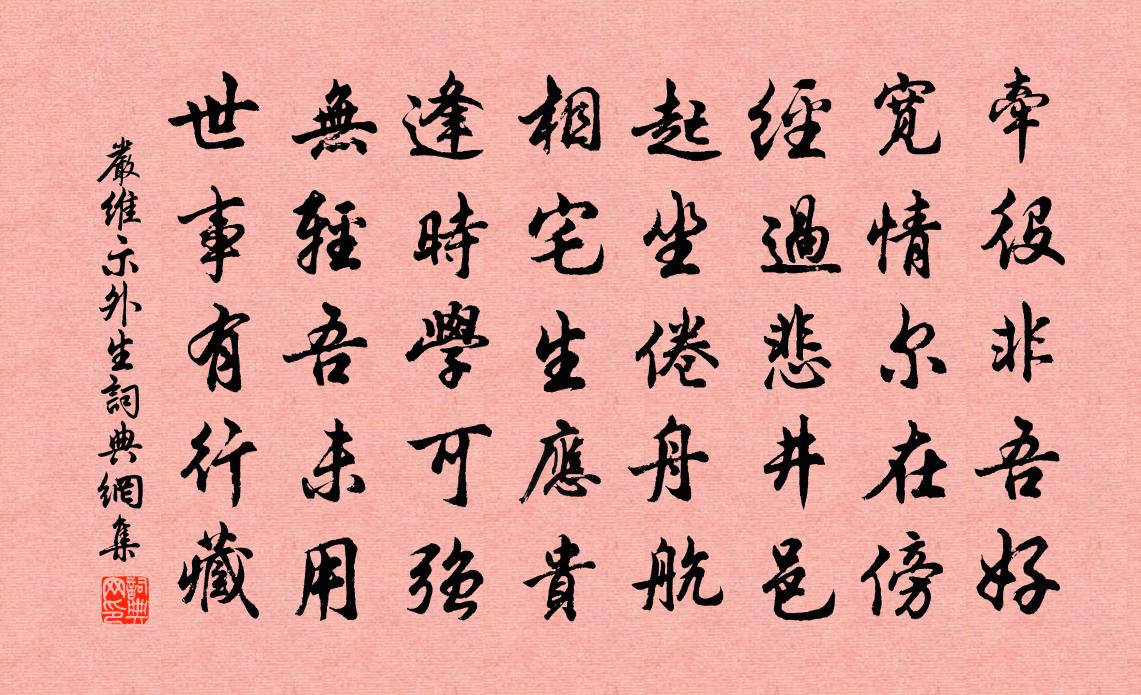 牽役非吾好
寛情尔在傍
經過悲井邑
起坐倦舟航
相宅生應貴
逢時學可強
無輕吾未用
世事有行藏
嚴維示外生詞典網集
詞典網印